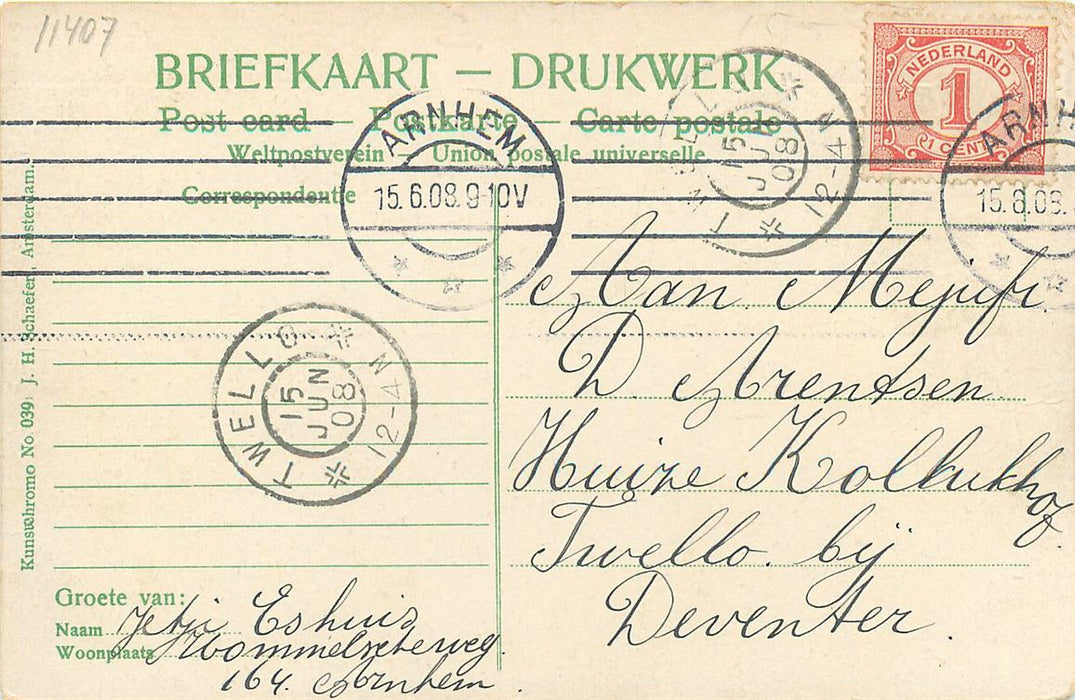 11407
BRIEFKAART — DRUKWERK
Post card — Postkarte — Carte postale
Weltpostverein — Union postale universelle
Correspondentie
NEDERLAND
1
1 CENT
ARNHEM
15.6.08.9-10V
ARNH
15.6.08.
TWELLO
15 JUN 08
12-4 N
TWELLO
15 JUN 08
12-4 N
Aan Mejufr.
D. Arentsen
Huize Kolkukhof
Twello. bij
Deventer.
Groete van:
Naam Jetje Eshuis
Woonplaats Rommelseterweg
164. Arnhem.
Kunstchromo No 039 J. H. Schaefer, Amsterdam.